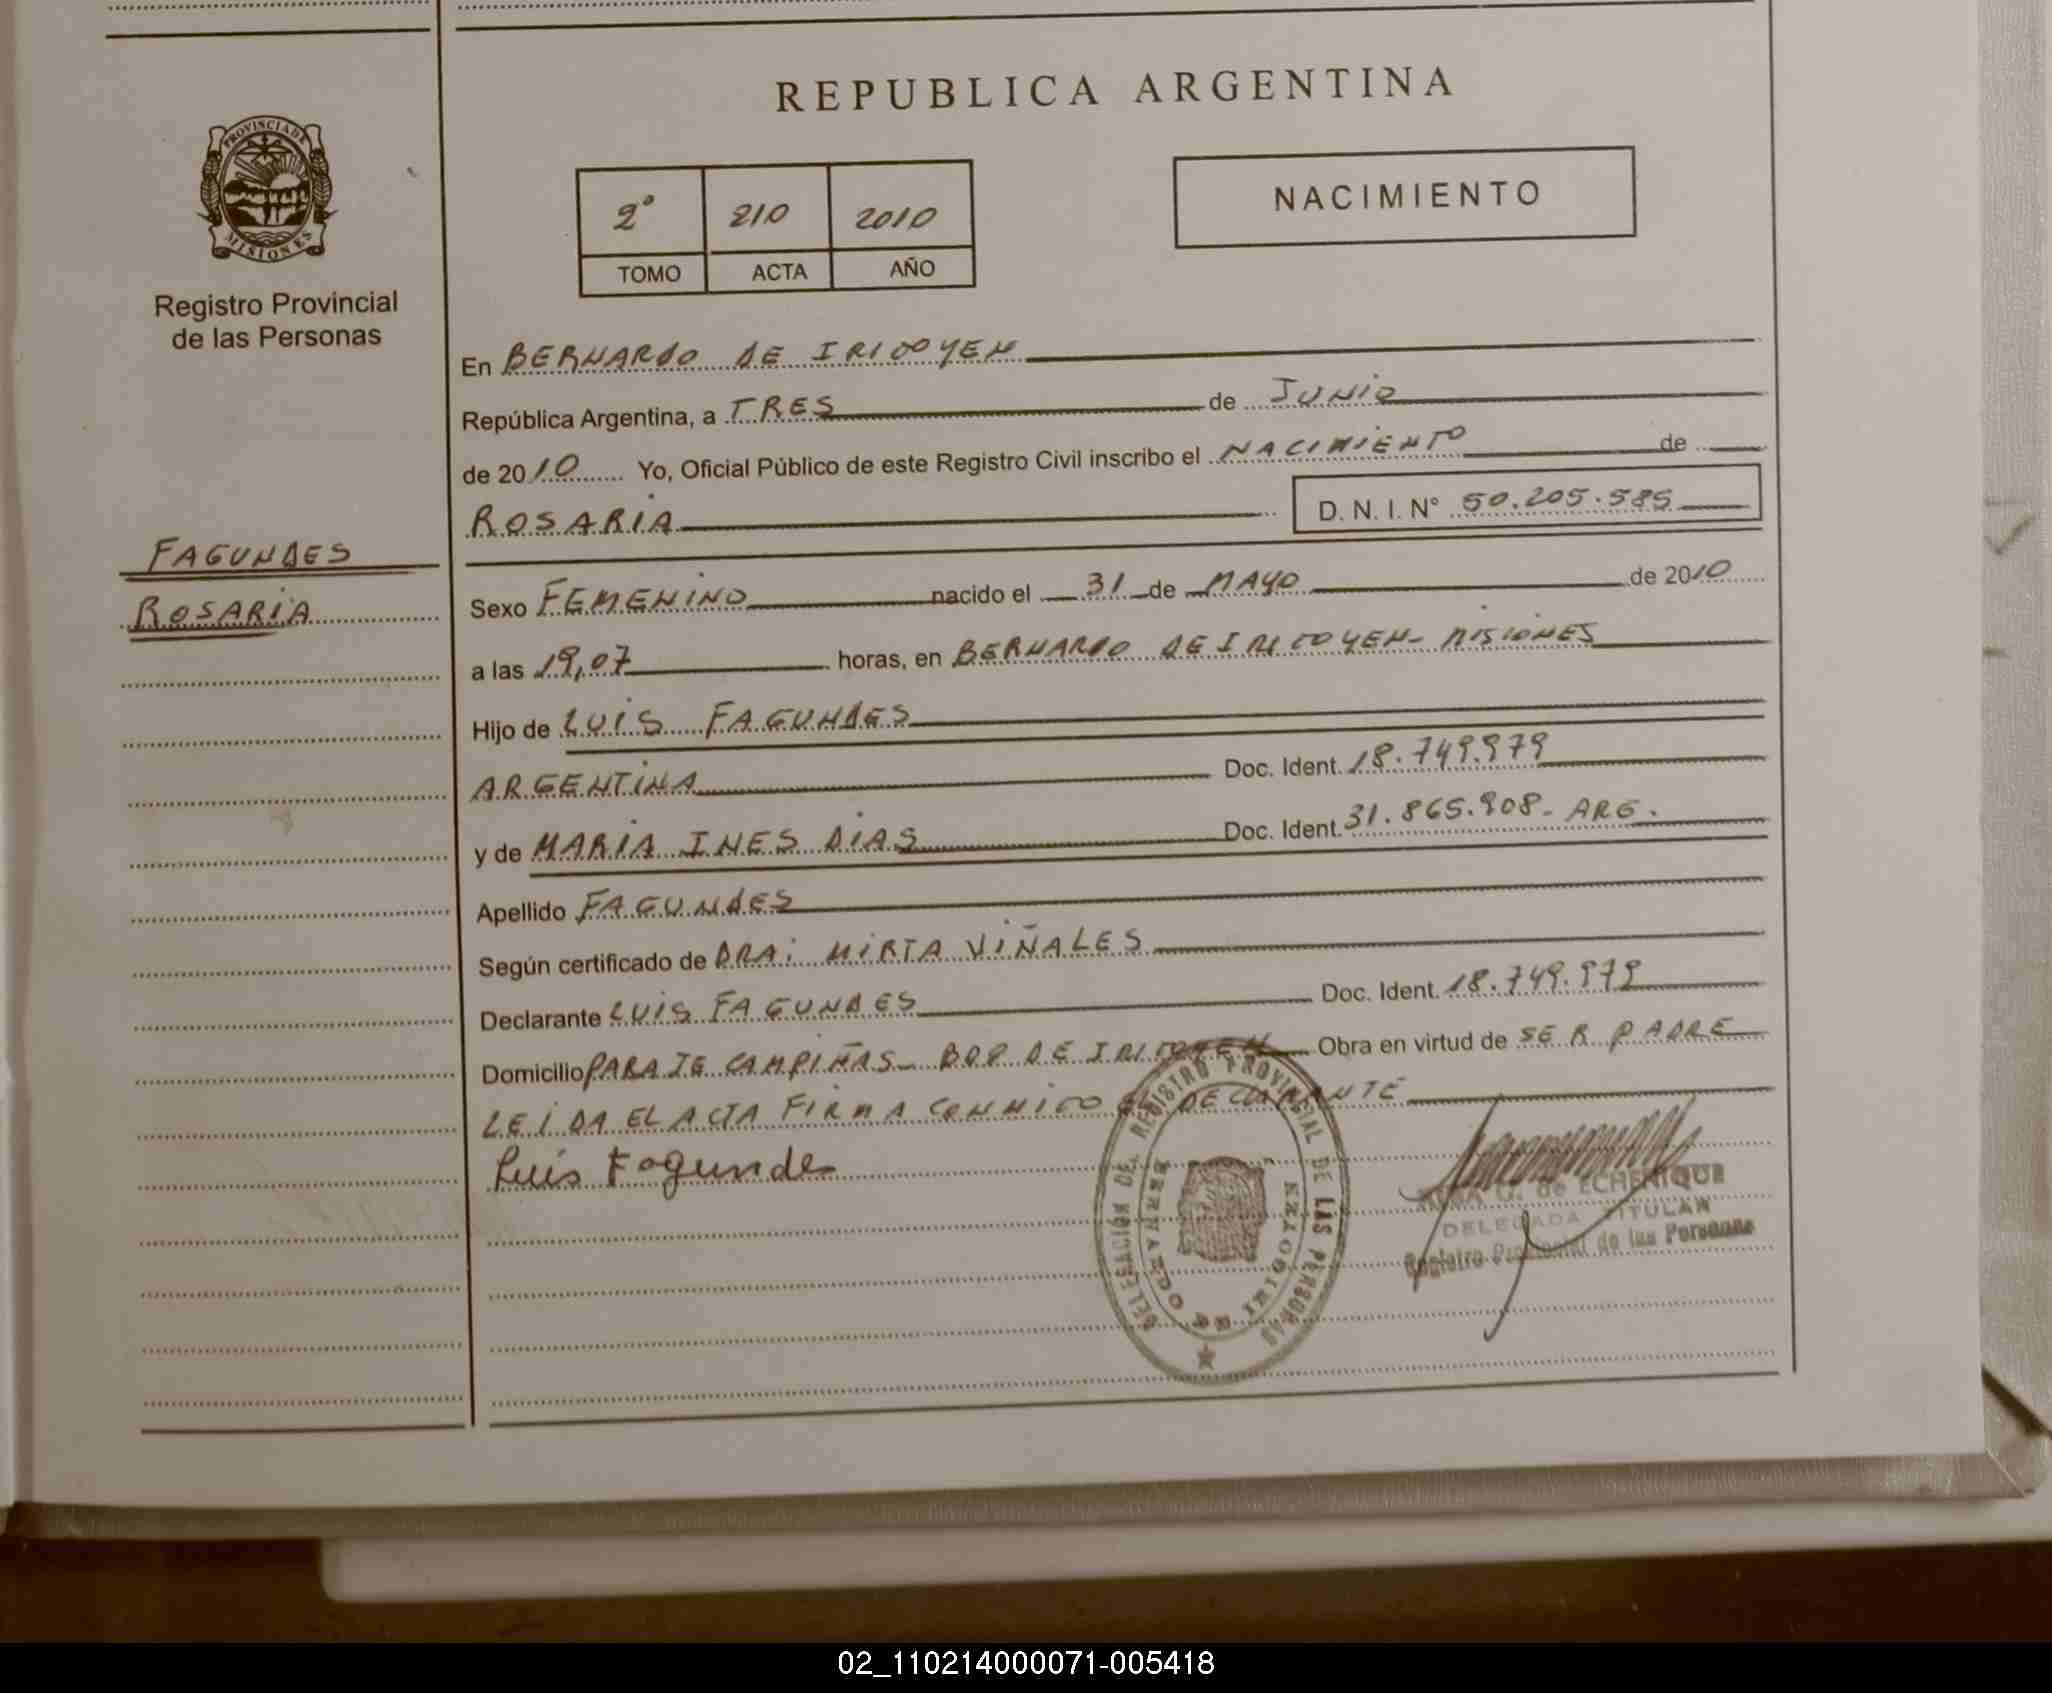 REPUBLICA ARGENTINA
PROVINCIA DE
MISIONES
Registro Provincial
de las Personas
2° 210 2010
TOMO ACTA AÑO
NACIMIENTO
En BERNARDO DE IRIGOYEN
República Argentina, a TRES de JUNIO
de 2010 Yo, Oficial Público de este Registro Civil inscribo el NACIMIENTO de
ROSARIA D. N. I. N° 50.205.585
FAGUNDES
ROSARIA
Sexo FEMENINO nacido el 31 de MAYO de 2010
a las 19,07 horas, en BERNARDO DE IRIGOYEN- MISIONES
Hijo de LUIS FAGUNDES
ARGENTINA Doc. Ident. 18.749.979
y de MARIA INES DIAS Doc. Ident. 31.865.908- ARG.
Apellido FAGUNDES
Según certificado de DRA: MIRTA VIÑALES
Declarante LUIS FAGUNDES Doc. Ident. 18.749.979
Domicilio PARAJE CAMPIÑAS- BDO DE IRIGOYEN Obra en virtud de SER PADRE
LEIDA EL ACTA FIRMA CONMIGO EL DECLARANTE
Luis Fagundes
DELEGACIÓN DEL REGISTRO PROVINCIAL DE LAS PERSONAS
BERNARDO DE IRIGOYEN
de ECHENIQUE
DELEGADA TITULAR
Registro Provincial de las Personas
02_110214000071-005418